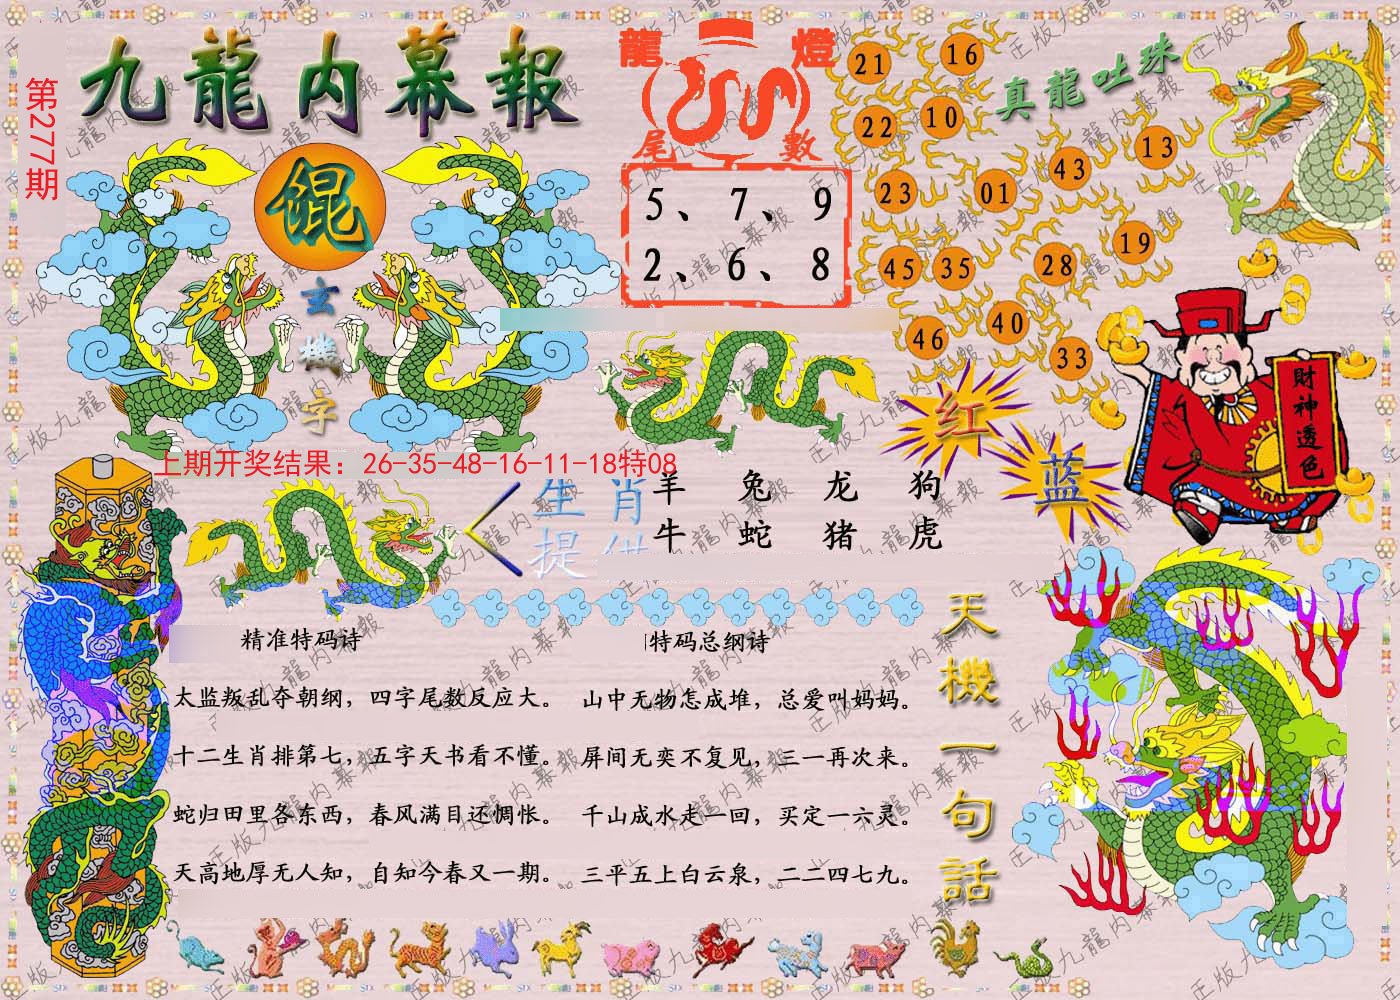 九龍内幕報
第277期
餛
玄機字
龍燈
尾數
5、7、9
2、6、8
真龍吐珠
21
16
22
10
13
43
23
01
19
45
35
28
46
40
33
財神透色
红
蓝
上期开奖结果：26-35-48-16-11-18特08
生肖
提供
羊 兔 龙 狗
牛 蛇 猪 虎
精准特码诗
太监叛乱夺朝纲，四字尾数反应大。
十二生肖排第七，五字天书看不懂。
蛇归田里各东西，春风满目还惆怅。
天高地厚无人知，自知今春又一期。
特码总纲诗
山中无物怎成堆，总爱叫妈妈。
屏间无奕不复见，三一再次来。
千山成水走一回，买定一六灵。
三平五上白云泉，二二四七九。
天機一句話
正版九龍内幕報